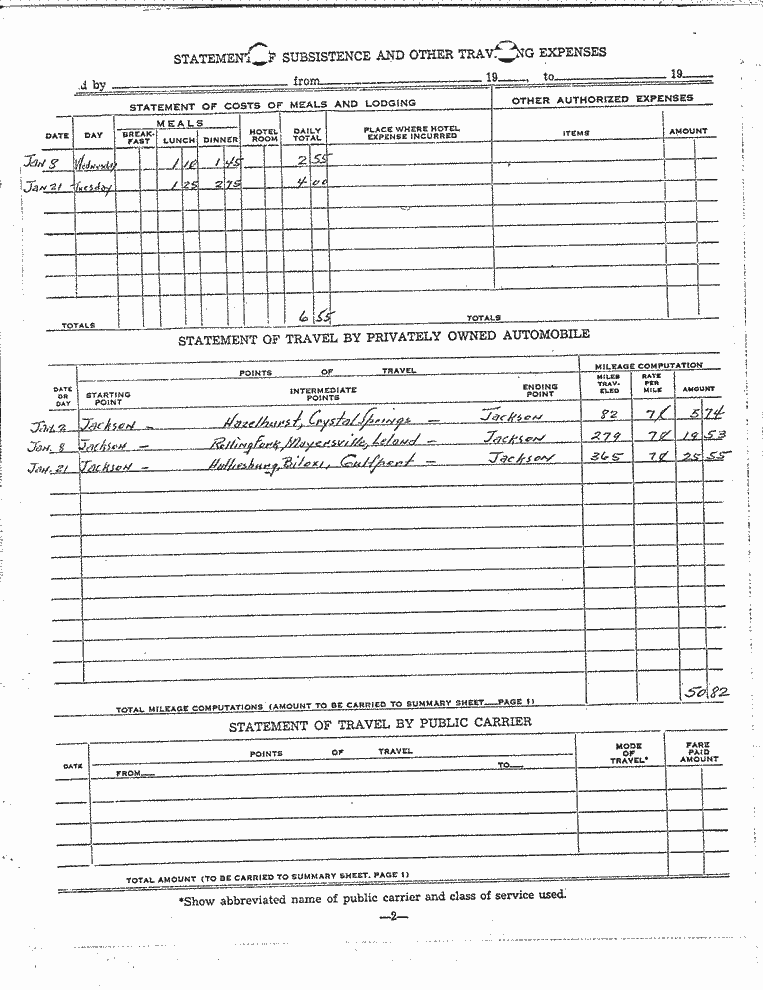 STATEMENT F SUBSISTENCE AND OTHER TRAV NG EXPENSES
d by from 19 , to 19
STATEMENT OF COSTS OF MEALS AND LODGING OTHER AUTHORIZED EXPENSES
DATE DAY MEALS BREAK-FAST LUNCH DINNER HOTEL ROOM DAILY TOTAL PLACE WHERE HOTEL EXPENSE INCURRED ITEMS AMOUNT
Jan 8 Wednesday 1 10 1 45 2 55
Jan 21 Tuesday 1 25 2 75 4 00
TOTALS 6 55 TOTALS
STATEMENT OF TRAVEL BY PRIVATELY OWNED AUTOMOBILE
POINTS OF TRAVEL MILEAGE COMPUTATION
DATE OR DAY STARTING POINT INTERMEDIATE POINTS ENDING POINT MILES TRAV-ELED RATE PER MILE AMOUNT
Jan 2 Jackson - Hazelhurst, Crystal Springs - Jackson 82 7¢ 5 74
Jan. 8 Jackson - Rolling Fork, Mayersville, Leland - Jackson 279 7¢ 19 53
Jan. 21 Jackson - Hattiesburg, Biloxi, Gulfport - Jackson 365 7¢ 25 55
50 82
TOTAL MILEAGE COMPUTATIONS (AMOUNT TO BE CARRIED TO SUMMARY SHEET PAGE 1)
STATEMENT OF TRAVEL BY PUBLIC CARRIER
DATE POINTS OF TRAVEL MODE OF TRAVEL* FARE PAID AMOUNT
FROM TO
TOTAL AMOUNT (TO BE CARRIED TO SUMMARY SHEET, PAGE 1)
*Show abbreviated name of public carrier and class of service used.
—2—